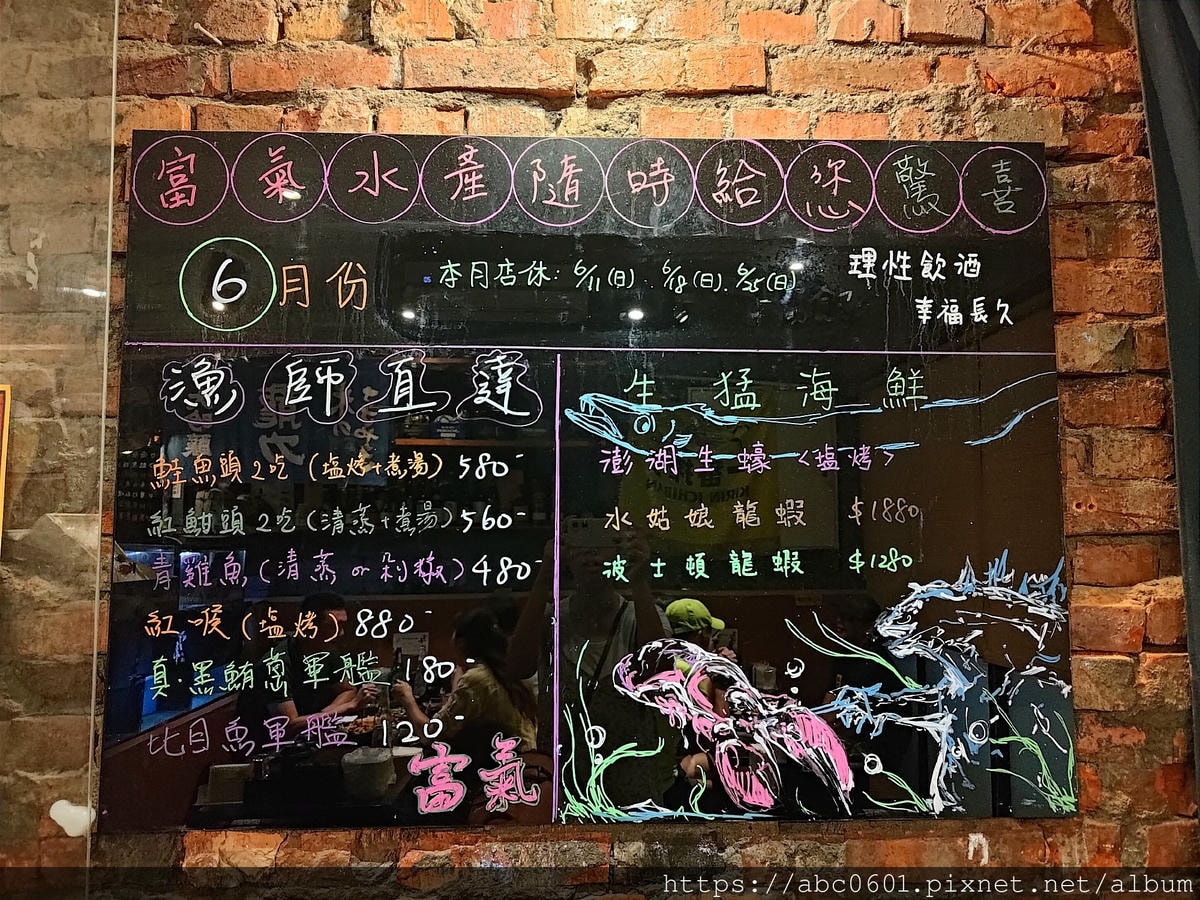 富氣水產隨時給您驚喜
6月份
本月店休: 6/11(日). 6/18(日). 6/25(日)
理性飲酒
幸福長久
漁師直達
鮭魚頭2吃(塩烤+煮湯) 580-
紅魽頭2吃(清蒸+煮湯) 560-
青雞魚(清蒸or剁椒) 480-
紅喉(塩烤) 880-
真·黑鮪蔥軍艦 180-
比目魚軍艦 120-
富氣
生猛海鮮
澎湖生蠔<塩烤>
水姑娘龍蝦 $1880
波士頓龍蝦 $1280
https://abc0601.pixnet.net/album